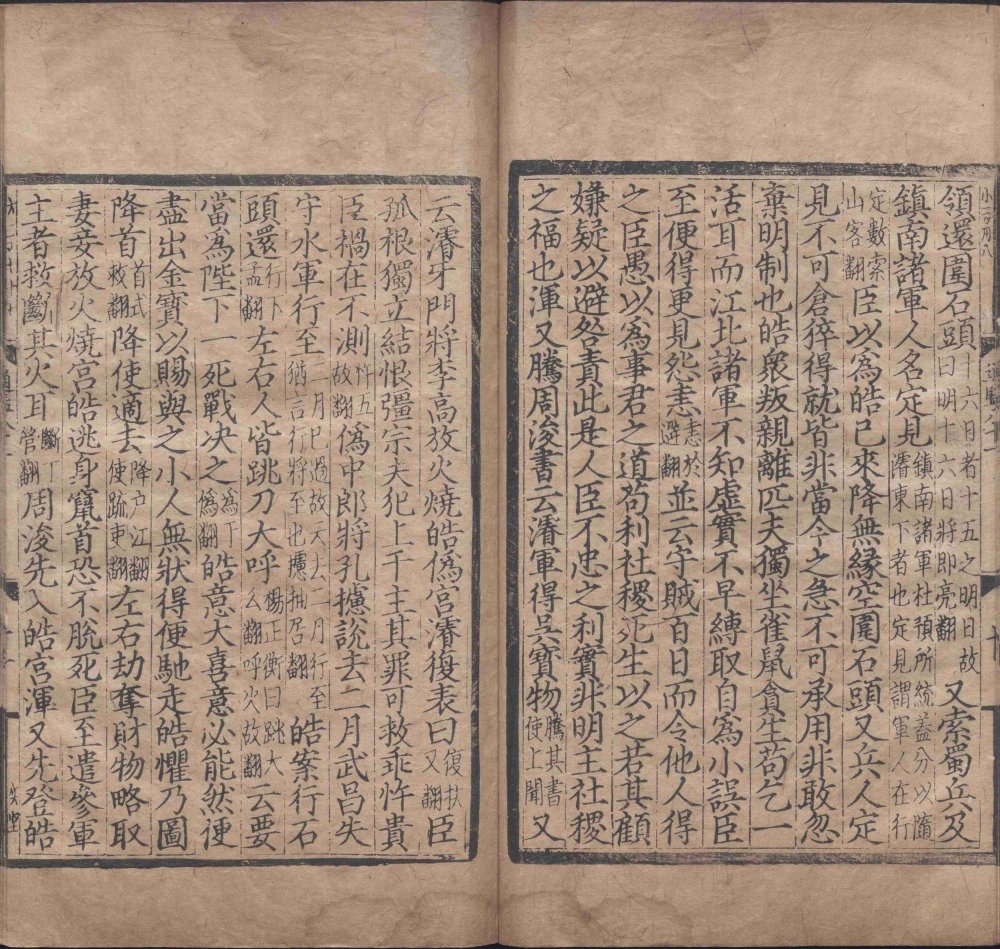 領還圍石頭十六日者十五之明日故曰明十六日將即亮翻又索蜀兵及
鎮南諸軍人名定見鎮南諸軍杜預所統蓋分以隨濬東下者也定見謂軍人在行
定數索山客翻臣以爲皓已來降無緣空圍石頭又兵人定
見不可倉猝得就皆非當今之急不可承用非敢忽
棄明制也皓衆叛親離匹夫獨坐雀鼠貪生苟乞一
活耳而江北諸軍不知虛實不早縛取自爲小誤臣
至便得更見怨恚恚於避翻並云守賊百日而令他人得
之臣愚以爲事君之道苟利社稷死生以之若其顧
嫌疑以避咎責此是人臣不忠之利實非明主社稷
之福也渾又騰周浚書云濬軍得吳寶物騰其書使上聞又
云濬牙門將李高放火燒皓僞宮濬復表曰復扶又翻臣
孤根獨立結恨彊宗夫犯上干主其罪可救乖忤貴
臣禍在不測忤五故翻僞中郎將孔攄說去二月武昌失
守水軍行至猶言行將至也攄抽居翻二月已過故云去二月行至皓案行石
頭還行下孟翻左右人皆跳刀大呼楊正衡曰跳大么翻呼火故翻云要
當爲陛下一死戰决之爲下僞翻皓意大喜意必能然便
盡出金寶以賜與之小人無狀得便馳走皓懼乃圖
降首首式救翻降使適去降户江翻使疏吏翻左右劫奪財物略取
妻妾放火燒宮皓逃身竄首恐不脫死臣至遣參軍
主者救斷其火耳斷丁管翻周浚先入皓宮渾又先登皓